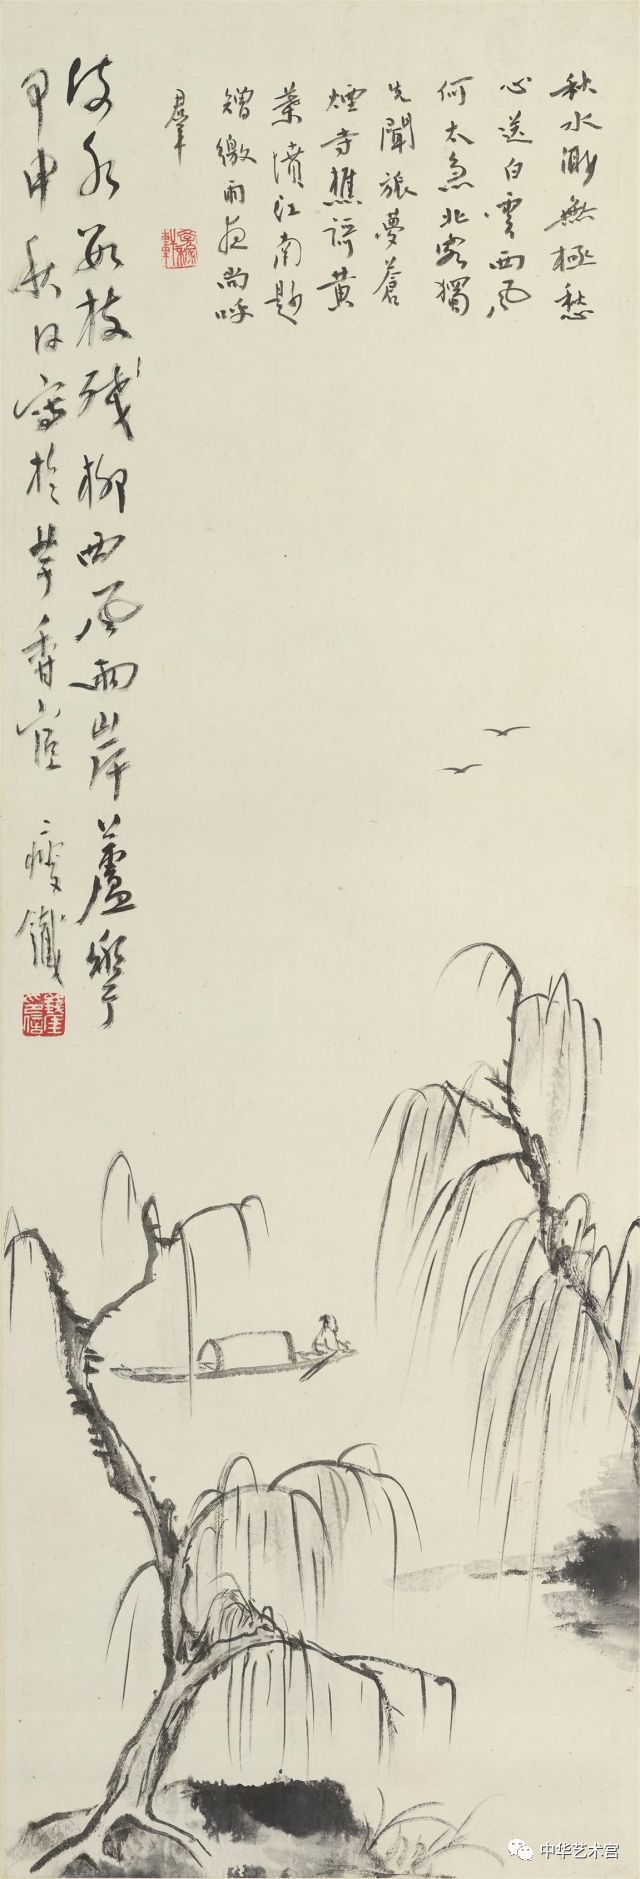 秋水渺無極愁
心送白雲西風
何太急北客獨
先聞旅夢蒼
煙寺樵語黃
葉墳江南
矰繳雨夜尚呼
羣
水數枝殘柳西風兩岸蘆
甲申秋日寫於芋香宧 瘦鐵
中华艺术宫